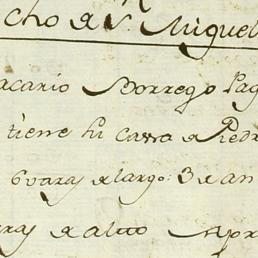 cho de Sn. Miguel
acario Borrego Pag
tiene su cassa de Piedr
6 varas de largo. 3 de an
ras de alto